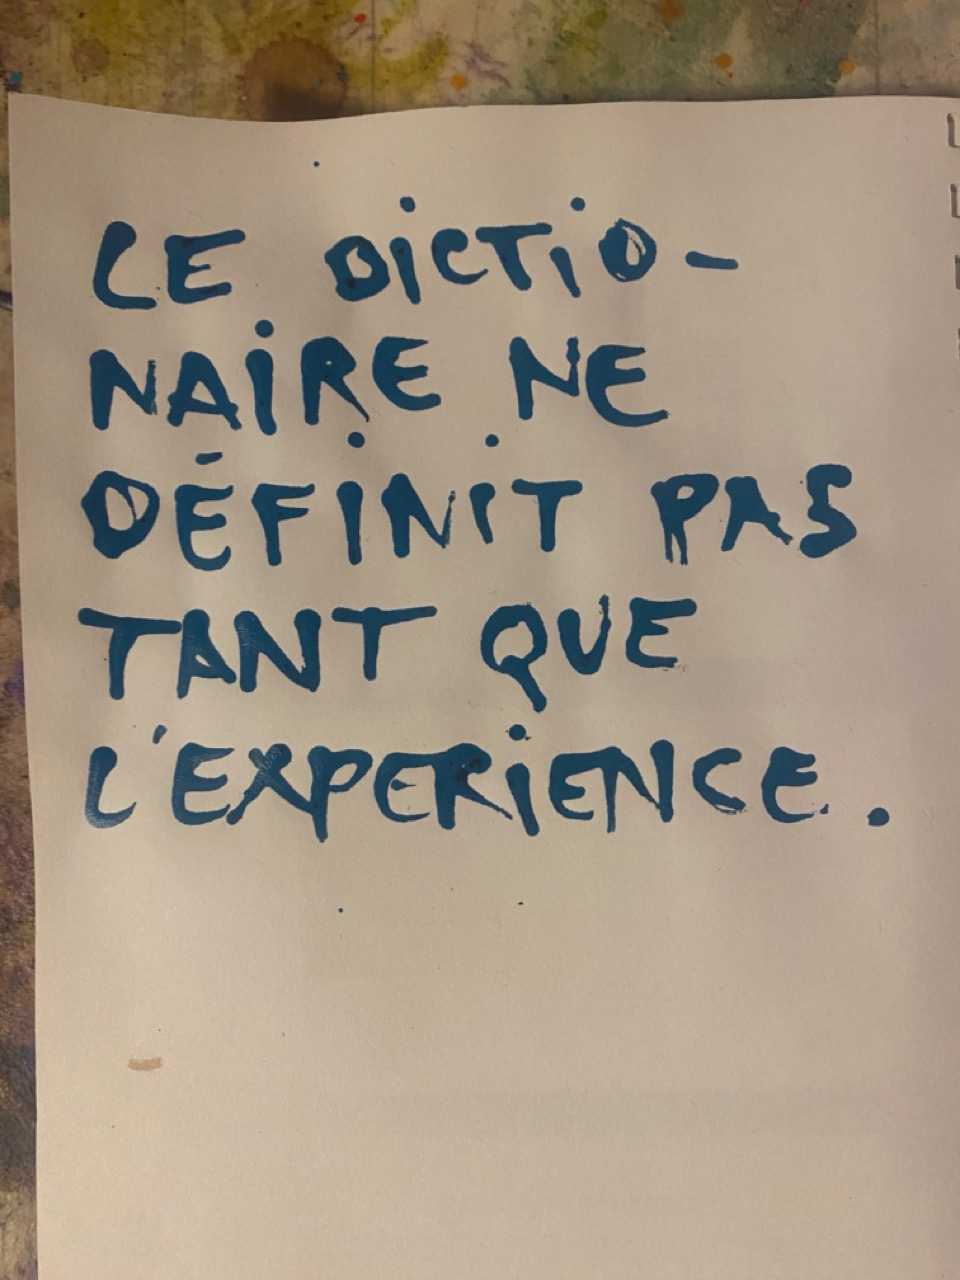 LE DiCTiO-
NAiRE NE
DÉFiNiT PAS
TANT QUE
L'EXPERiENCE.